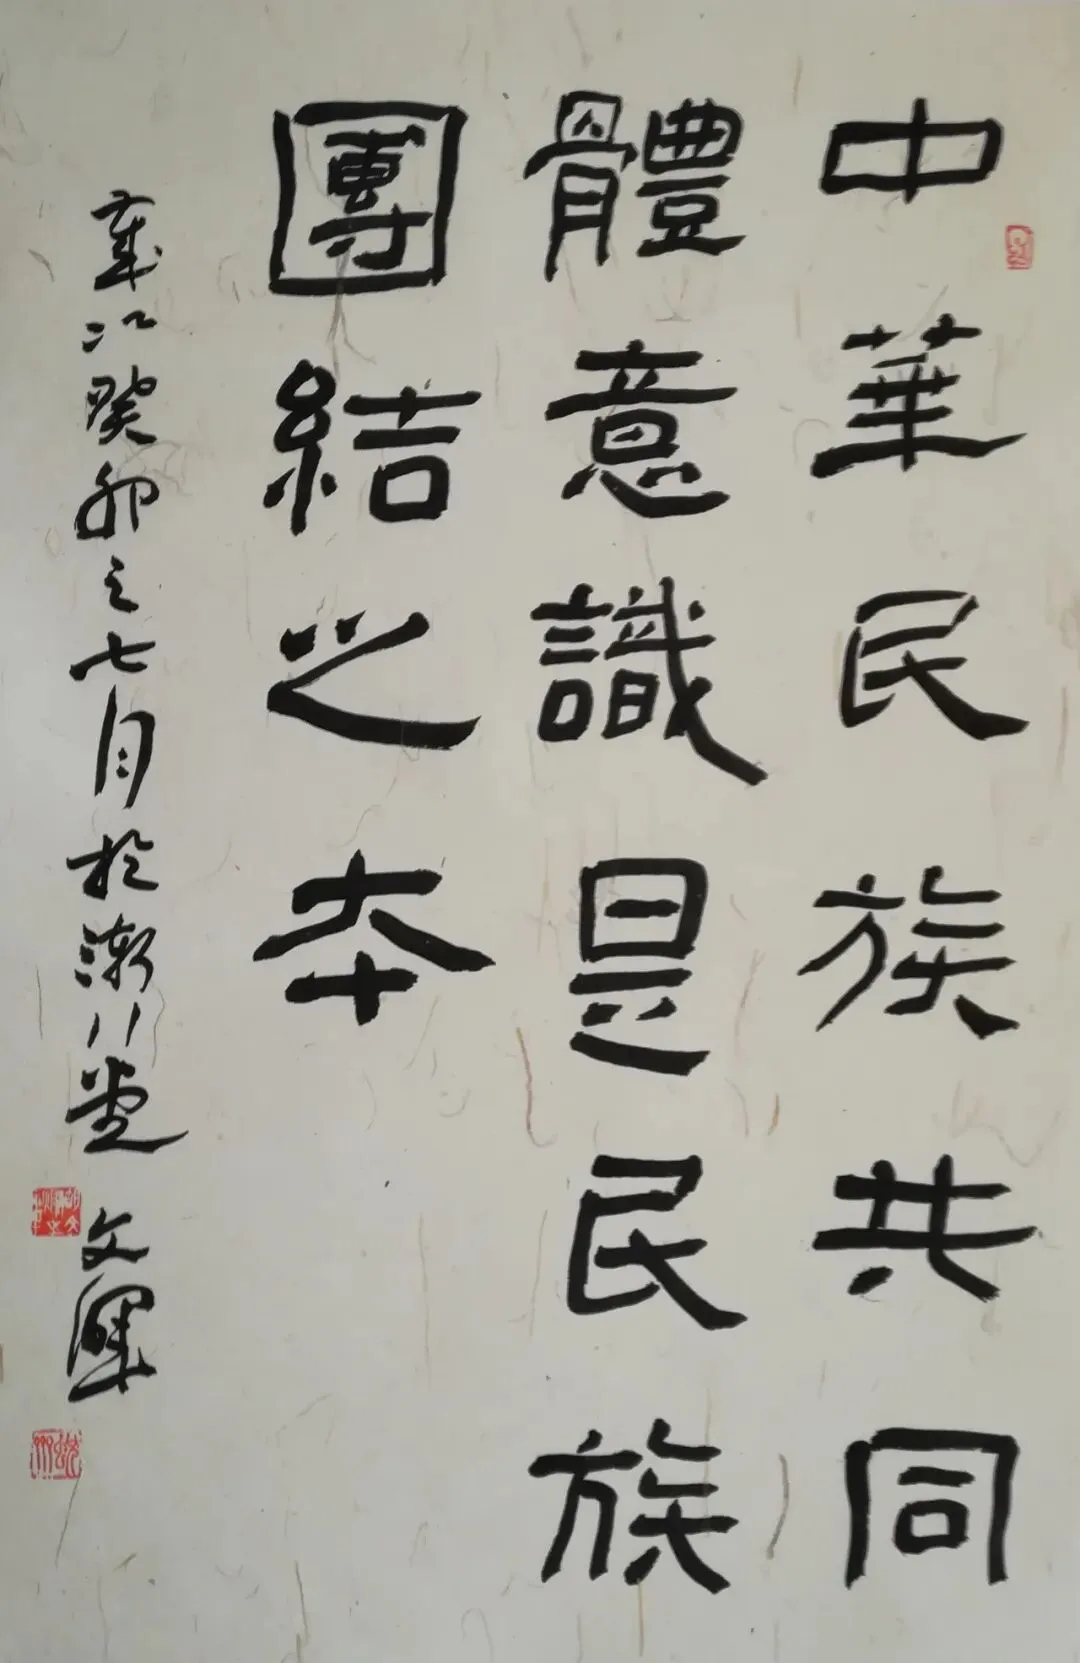 中華民族共同
體意識是民族
團結之本
癸卯之七月於漸川堂 文渾